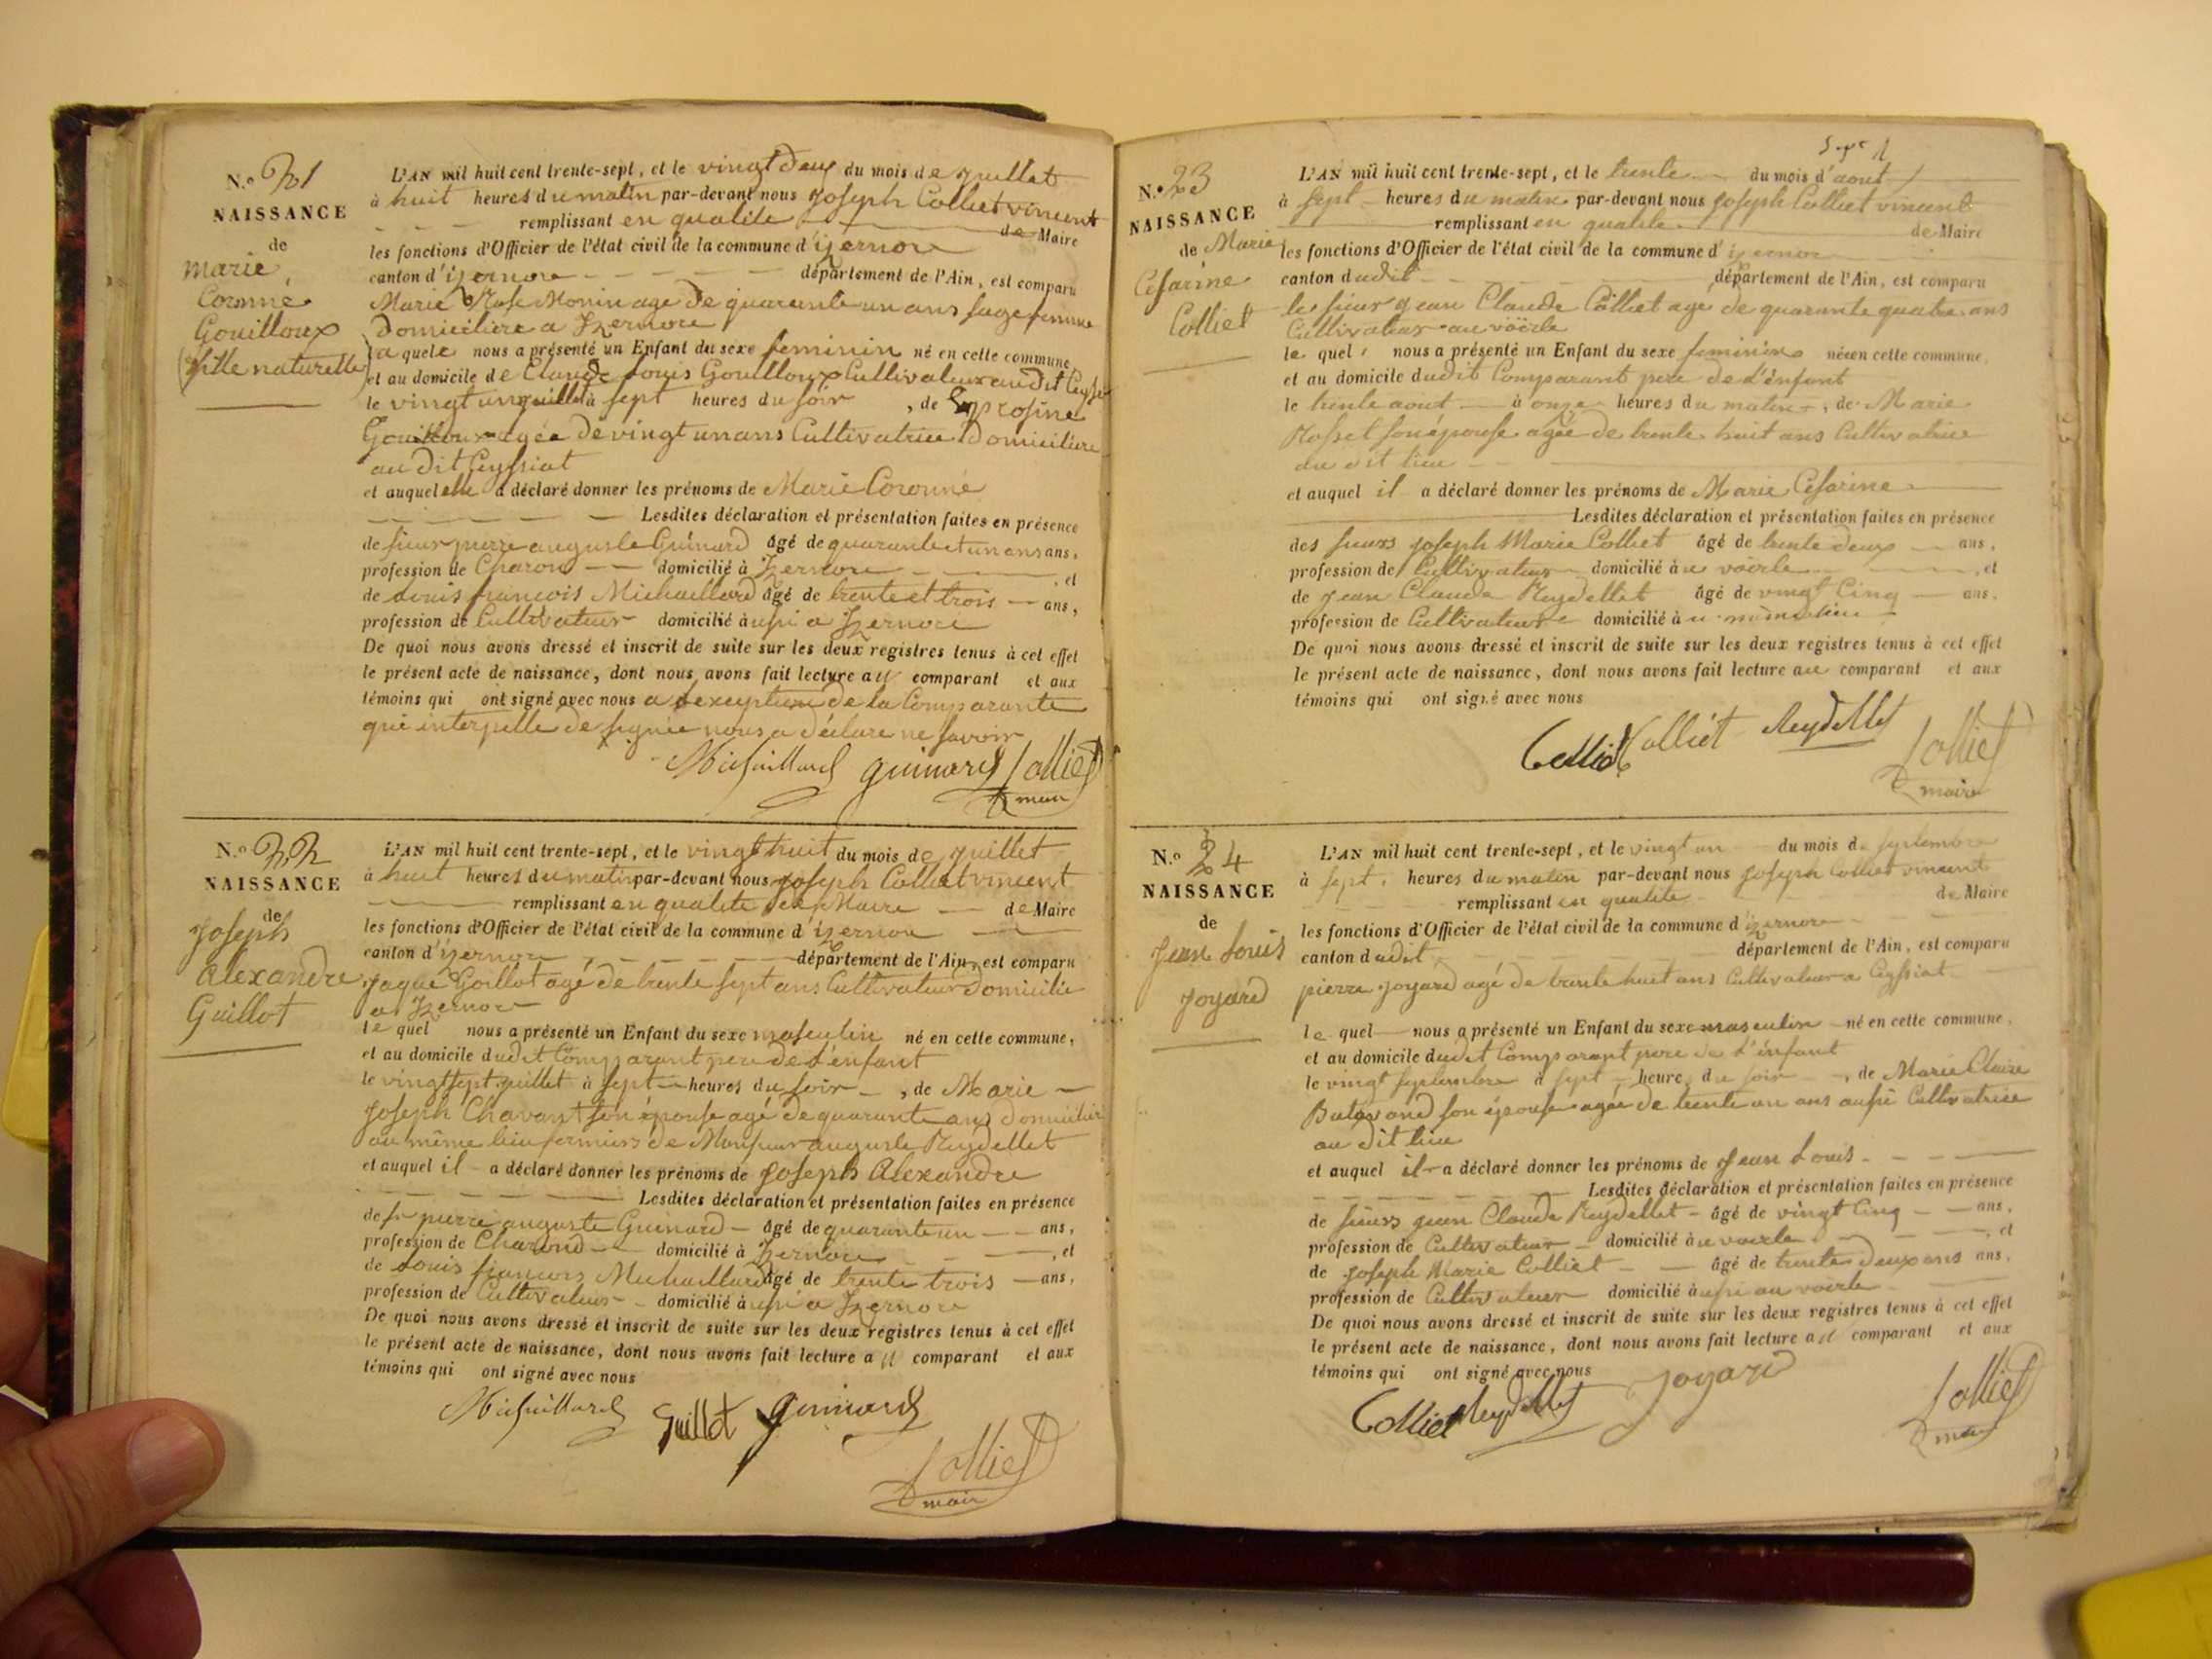 N.o 21
NAISSANCE
de
marie
Coronné
Gouilloux
(fille naturelle)
L'AN mil huit cent trente-sept, et le vingt deux du mois de juillet
à huit heures du matin par-devant nous joseph Colliet vincent
remplissant en qualité de Maire
les fonctions d'Officier de l'état civil de la commune d'izernore
canton d'izernore département de l'Ain, est comparu
Marie Rose Monin age de quarante un ans sage femme
domiciliere a Izernore
laquele nous a présenté un Enfant du sexe feminin né en cette commune
et au domicile de Claude Louis Gouilloux Cultivateur au dit Ceyssiat
le vingt un juillet à sept heures du soir, de
Gouilloux agée de vingt un ans Cultivatrice domiciliere
au dit Ceyssiat
et auquel elle a déclaré donner les prénoms de Marie Coronné
Lesdites déclaration et présentation faites en présence
de sieur pierre auguste Guinard âgé de quarante et un ans ans,
profession de Charon domicilié à Izernore, et
de Louis francois Michaillard âgé de trente et trois ans,
profession de Cultivateur domicilié à aussi a Izernore
De quoi nous avons dressé et inscrit de suite sur les deux registres tenus à cet effet
le présent acte de naissance, dont nous avons fait lecture au comparant et aux
témoins qui ont signé avec nous a l'exception de la Comparante
qui interpelle de signée nous a déclare ne savoir
Michaillard guinard Colliet
maire
N.o 22
NAISSANCE
de
joseph
alexandre
Guillot
L'AN mil huit cent trente-sept, et le vingt huit du mois de juillet
à huit heures du matin par-devant nous joseph Colliet vincent
remplissant en qualité de Maire de Maire
les fonctions d'Officier de l'état civil de la commune d'izernore
canton d'izernore département de l'Ain, est comparu
jaque Goillot agé de trente sept ans Cultivateur domicilié
a Izernore
le quel nous a présenté un Enfant du sexe masculin né en cette commune,
et au domicile dudit Comparant pere de l'enfant
le vingt sept juillet à sept heures du soir, de Marie
joseph Chavant son épouse agé de quarante ans domicilier
au même lieu fermiers de Monsieur auguste Reydellet
et auquel il a déclaré donner les prénoms de joseph alexandre
Lesdites déclaration et présentation faites en présence
de sr pierre auguste Guinard âgé de quarante un ans,
profession de Charond domicilié à Izernore, et
de Louis francois Michaillard âgé de trente trois ans,
profession de Cultivateur domicilié à aussi a Izernore
De quoi nous avons dressé et inscrit de suite sur les deux registres tenus à cet effet
le présent acte de naissance, dont nous avons fait lecture au comparant et aux
témoins qui ont signé avec nous
Michaillard Guillot guinard
Colliet
maire
N.o 23
NAISSANCE
de Marie
Cesarine
Colliet
L'AN mil huit cent trente-sept, et le trente du mois d'aout
à sept heures du matin par-devant nous joseph Colliet vincent
remplissant en qualité de Maire
les fonctions d'Officier de l'état civil de la commune d'izernore
canton dudit département de l'Ain, est comparu
le sieur jean Claude Colliet age de quarante quatre ans
Cultivateur au voërle
le quel nous a présenté un Enfant du sexe feminin né en cette commune,
et au domicile dudit Comparant pere de l'énfant
le trente aout à onze heures du matin, de Marie
Rosset son épouse agée de trente huit ans Cultivatrice
du dit lieu
et auquel il a déclaré donner les prénoms de Marie Cesarine
Lesdites déclaration et présentation faites en présence
des sieurs joseph Marie Colliet âgé de trente deux ans,
profession de Cultivateur domicilié à u voërle, et
de jean Claude Reydellet âgé de vingt Cinq ans,
profession de Cultivateur domicilié à u même lieu
De quoi nous avons dressé et inscrit de suite sur les deux registres tenus à cet effet
le présent acte de naissance, dont nous avons fait lecture au comparant et aux
témoins qui ont signé avec nous
Colliet Colliét Reydellet Colliet
maire
N.o 24
NAISSANCE
de
jean Louis
joyard
L'AN mil huit cent trente-sept, et le vingt un du mois de septembre
à sept heures du matin par-devant nous joseph Colliet vincent
remplissant en qualité de Maire
les fonctions d'Officier de l'état civil de la commune d'izernore
canton dudit département de l'Ain, est comparu
pierre joyard agé de trente huit ans Cultivateur a Ceyssiat
le quel nous a présenté un Enfant du sexe masculin né en cette commune,
et au domicile dudit Comparant pere de l'énfant
le vingt septembre à sept heures du soir, de Marie Claire
son épouse agée de trente un ans aussi Cultivatrice
au dit lieu
et auquel il a déclaré donner les prénoms de jean Louis
Lesdites déclaration et présentation faites en présence
de sieurs jean Claude Reydellet âgé de vingt Cinq ans,
profession de Cultivateur domicilié à u voërle, et
de joseph Marie Colliet âgé de trente deux ans ans,
profession de Cultivateur domicilié à aussi au voërle
De quoi nous avons dressé et inscrit de suite sur les deux registres tenus à cet effet
le présent acte de naissance, dont nous avons fait lecture au comparant et aux
témoins qui ont signé avec nous
Colliet Reydellet joyard Colliet
maire